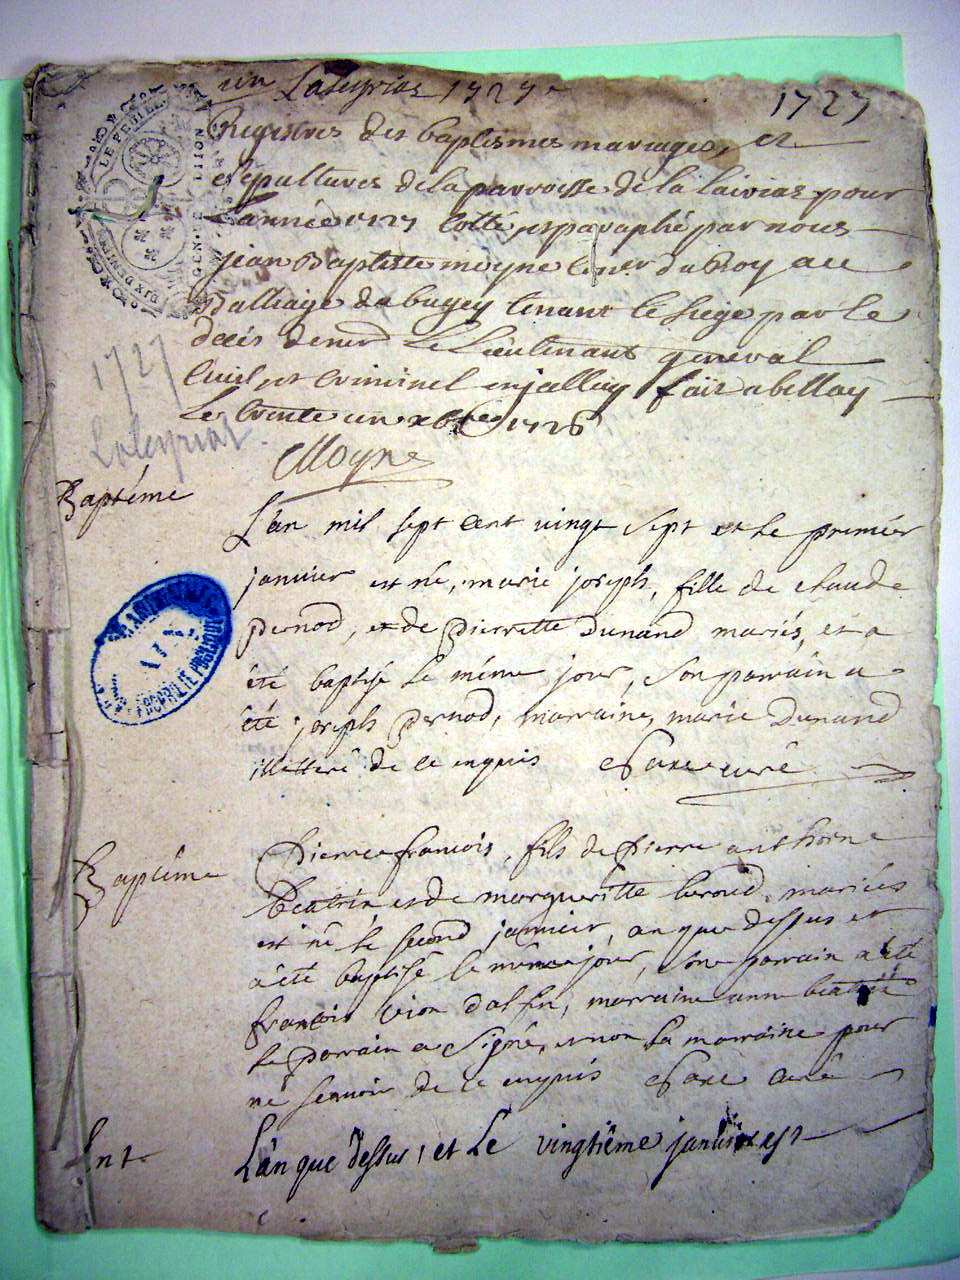 un Laleyriat 1727
1727
Registres des baptismes mariages, et
sepultures de la parroisse de la lairiaz pour
l'année 1727 Cotté et paraphé par nous
Jean Baptiste moyne Coner du Roy au
Balliage du bugey tenant le siege par le
deces de mr Le Lieutenant general
Civil et Criminel fait a bellay
Le trente un xbre 1726
Moyne
1727
Laleyriat
Baptéme
L'an mil sept cent vingt sept et le premiér
janviér est né, marie joseph, fille de claude
pernod, et de pierrette Dunand mariés, et a
été baptisé le méme jour, son parrain a
été joseph pernod, marraine, marie Dunand
illitteré de ce enquis curé
Baptéme
Pierre francois, fils de pierre anthoine
beatrix et de margueritte mariés
est né le second janvier, an que dessus et
a été baptisé le même jour, son parrain a été
francois vion dalfin, marraine anne beatrix
le parrain a signé, et non la marraine pour
ne scavoir de ce enquis curé
Ent
L'an que dessus, et le vingtiême janvier est
LE FEUILLET
DIX DENIERS
AIN
PROPRIÉTÉ PUBLIQUE